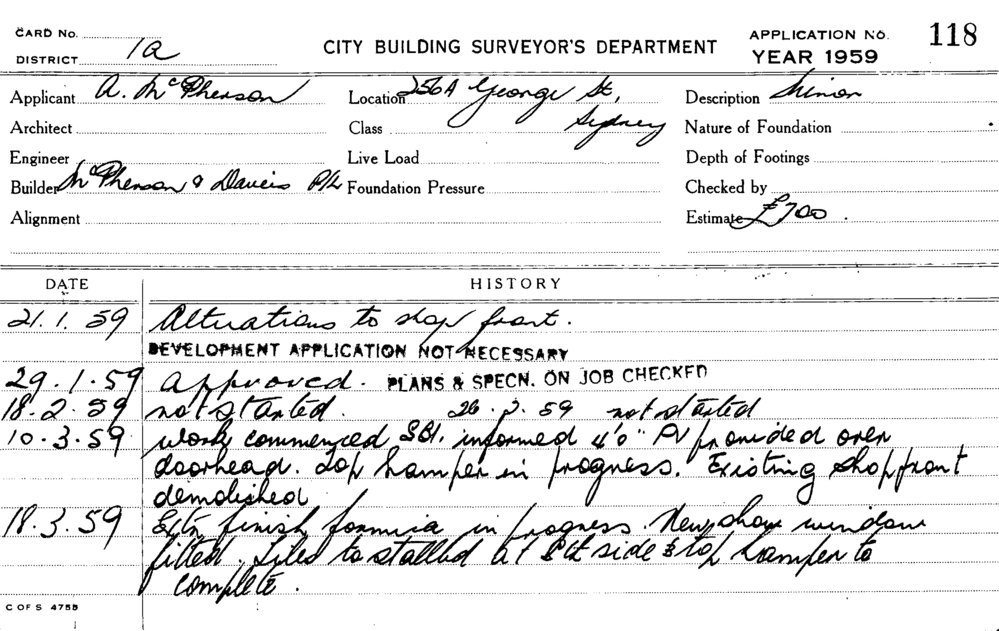 CARD No.
DISTRICT 1a
CITY BUILDING SURVEYOR'S DEPARTMENT
APPLICATION No. 118
YEAR 1959
Applicant A. McPherson
Location 256A George St,
Sydney
Description Minor
Architect
Class
Nature of Foundation
Engineer
Live Load
Depth of Footings
Builder McPherson & Davies P/L
Foundation Pressure
Checked by
Alignment
Estimate £700.
DATE HISTORY
21.1.59 Alterations to shop front.
DEVELOPMENT APPLICATION NOT NECESSARY
29.1.59 Approved. PLANS & SPECN. ON JOB CHECKED
18.2.59 not started. 26.2.59 not started
10.3.59 work commenced informed 4'0" PV provided over
doorhead. Top hamper in progress. Existing shopfront
demolished
18.3.59 Extn finish formica in progress. New show window
fitted. Tiles to stallbd at side & top hamper to
complete.
C OF S 4755